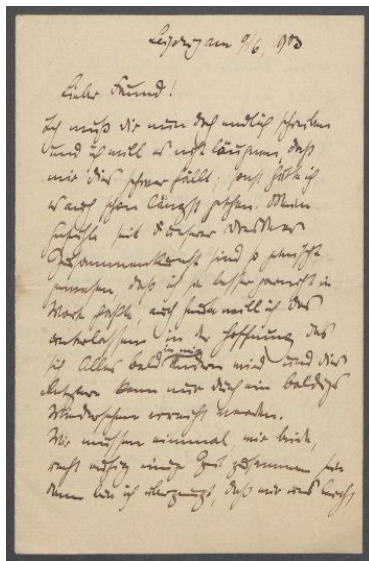 Leipzig am 9/6. 903
Lieber Freund!
Ich muß dir nun doch endlich schreiben
und ich will es nicht läugnen, daß
mir dies schwer fällt; sonst hätte ich
es auch schon längst gethan. Meine
Gefühle seit unserer Dresdner
Zusammenkunft sind so gemischt
gewesen, daß ich sie besser garnicht in
Worte faßte, auch heute will ich das
unterlassen in der Hoffnung das
sich Alles bald in mir ändern wird und dies
Letztere kann nur durch ein baldiges
Wiedersehen erreicht werden.
Wir mußten einmal, wir beide,
recht ruhig einige Zeit zusammen sein
denn bin ich überzeugt, daß wir uns leicht